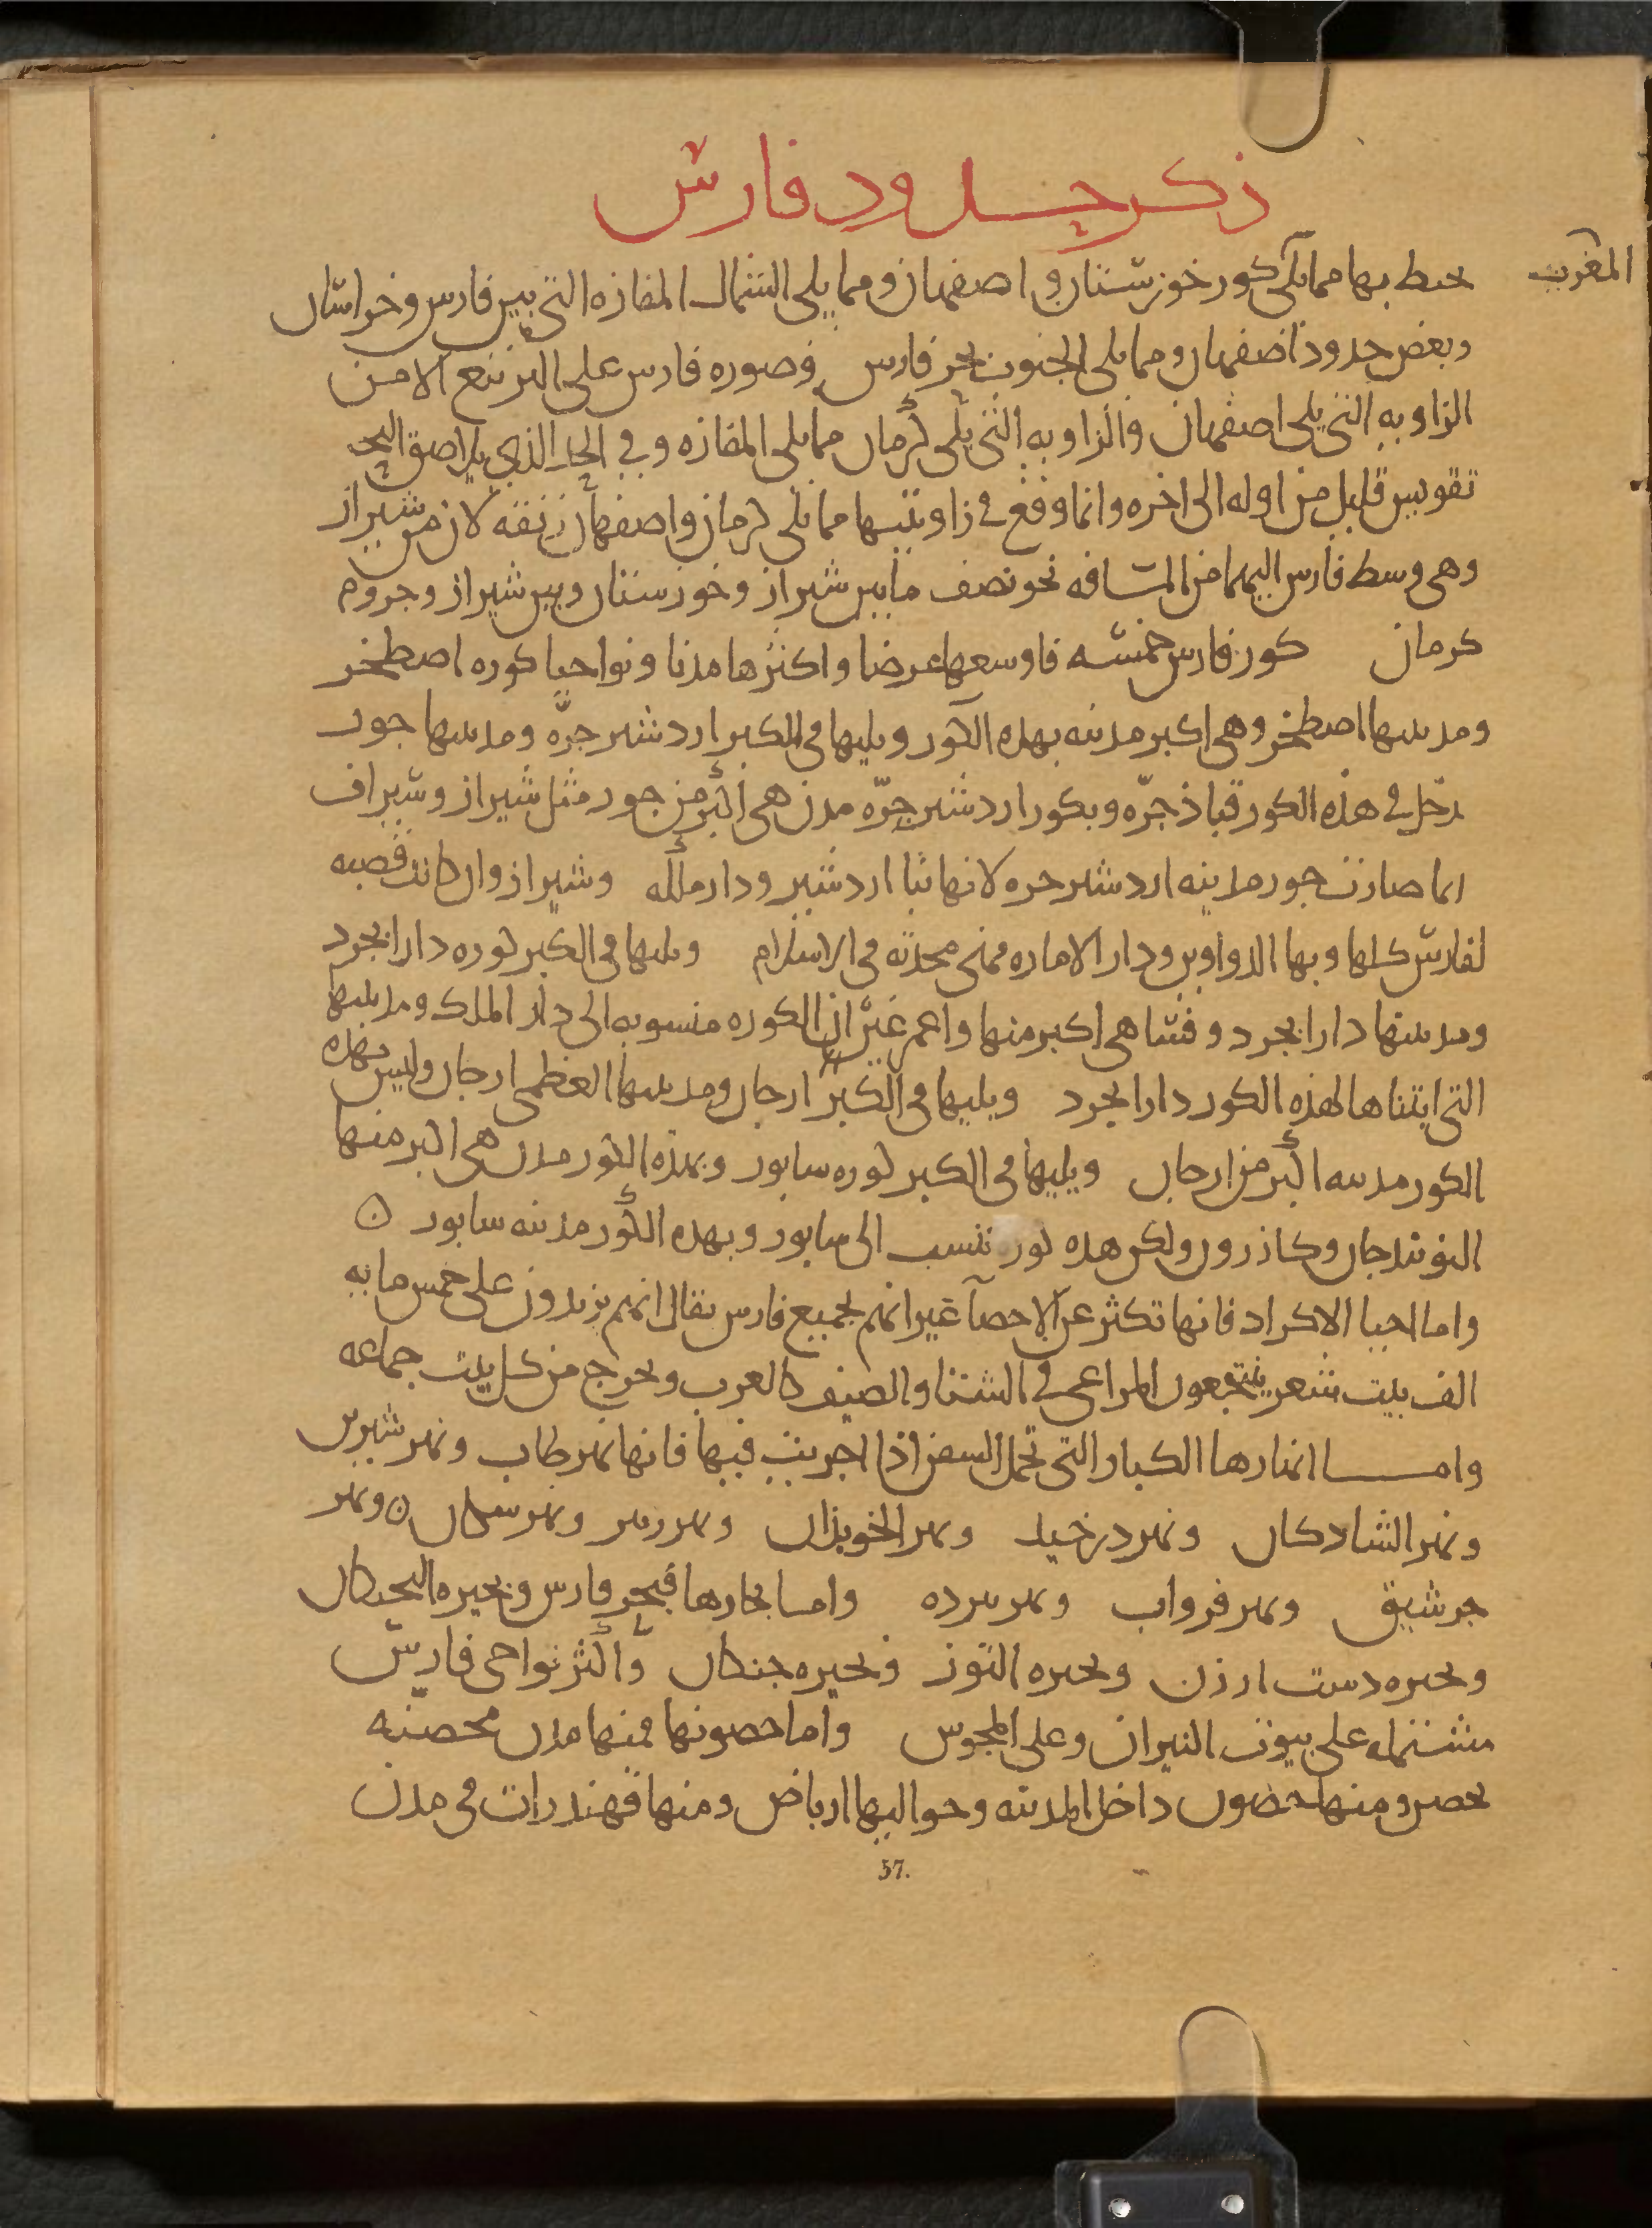 ذكر حدود فارس
المغرب
يحيط بها مما يلى كور خوزستان و اصفهان ومما يلى الشمال المفازه التى بين فارس وخراسان
وبعض حدود اصفهان ومما يلى الجنوب بحر فارس وصوره فارس على التربيع الا من
الزاويه التى يلى اصفهان والزاويه التى يلى كرمان مما يلى المفازه وفى الحد الذى يلاصق البحر
تقويس قليل من اوله الى اخره وانما وقع فى زاويتيها مما يلى كرمان واصفهان زنقه لان من شيراز
وهى وسط فارس اليهما من المسافه نحو نصف ما بين شيراز وخوزستان وبين شيراز وجروم
كرمان كور فارس خمسه فاوسعها عرضا واكثرها مدنا ونواحيا كوره اصطخر
ومدينتها اصطخر وهى اكبر مدينه بهذه الكور ويليها فى الكبر اردشير جرّه ومدينتها جور
يدخل فى هذه الكور قباذ جرّه وبكور اردشير جرّه مدن هى اكبر من جور مثل شيراز وسيراف
انما صارت جور مدينه اردشير خره لانها بنا اردشير ودار ملكه وشيراز وان كانت قصبه
لفارس كلها وبها الدواوين ودار الاماره فهى محدثه فى الاسلام ويليها فى الكبر كوره دارابجرد
ومدينتها دارابجرد وفسا هى اكبر منها واعمر غير ان الكوره منسوبه الى دار الملك ومدينتها
التى ابتناها لهذه الكور دارابجرد ويليها فى الكبر ارجان ومدينتها العظمى ارجان وليس بهذه
الكور مدينه اكبر من ارجان ويليها فى الكبر كوره سابور وبهذه الكور مدن هى اكبر منها
النوبندجان وكازرون ولكن هذه كور تنسب الى سابور وبهذه الكور مدينه سابور ن
واما احيا الاكراد فانها تكثر عن الاحصآ غير انهم بجميع فارس يقال انهم يزيدون على خمس مايه
الف بيت شعر ينتجعون المراعى فى الشتا والصيف كالعرب ويخرج من كل بيت جماعه
وامــا انهارها الكبار التى تحمل السفن اذا اجريت فيها فانها نهر طاب ونهر شيرين
ونهر الشادكان ونهر درخيد ونهر الخوبذان ونهر رتين ونهر سكان ن ونهر
جرشيق ونهر فرواب ونهر تيرده واما بحارها فبحر فارس وبحيره البجتكان
وبحيره دست ارزن وبحيره التوز وبحيره جنكان واكثر نواحى فارس
مشتمله على بيوت النيران وعلى المجوس واما حصونها فمنها مدن محصنه
بحصن ومنها حصون داخل المدينه وحواليها ارباض ومنها قهندرات فى مدن
57.